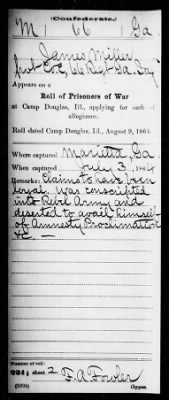 (Confederate.)
M 66 Ga
James Miller
Pvt Co. C, 66 Reg't Ga. Inf.
Appears on a
Roll of Prisoners of War
at Camp Douglas, Ill., applying for oath of
allegiance.
Roll dated Camp Douglas, Ill., August 9, 1864.
Where captured Marietta, Ga
When captured July 3, 1864
Remarks: Claims to have been
loyal. Was conscripted
into Rebel Army and
deserted to avail himself
of Amnesty Proclamation
&c. —
Number of roll:
sheet 2
F. A. Fowler
Copyist.